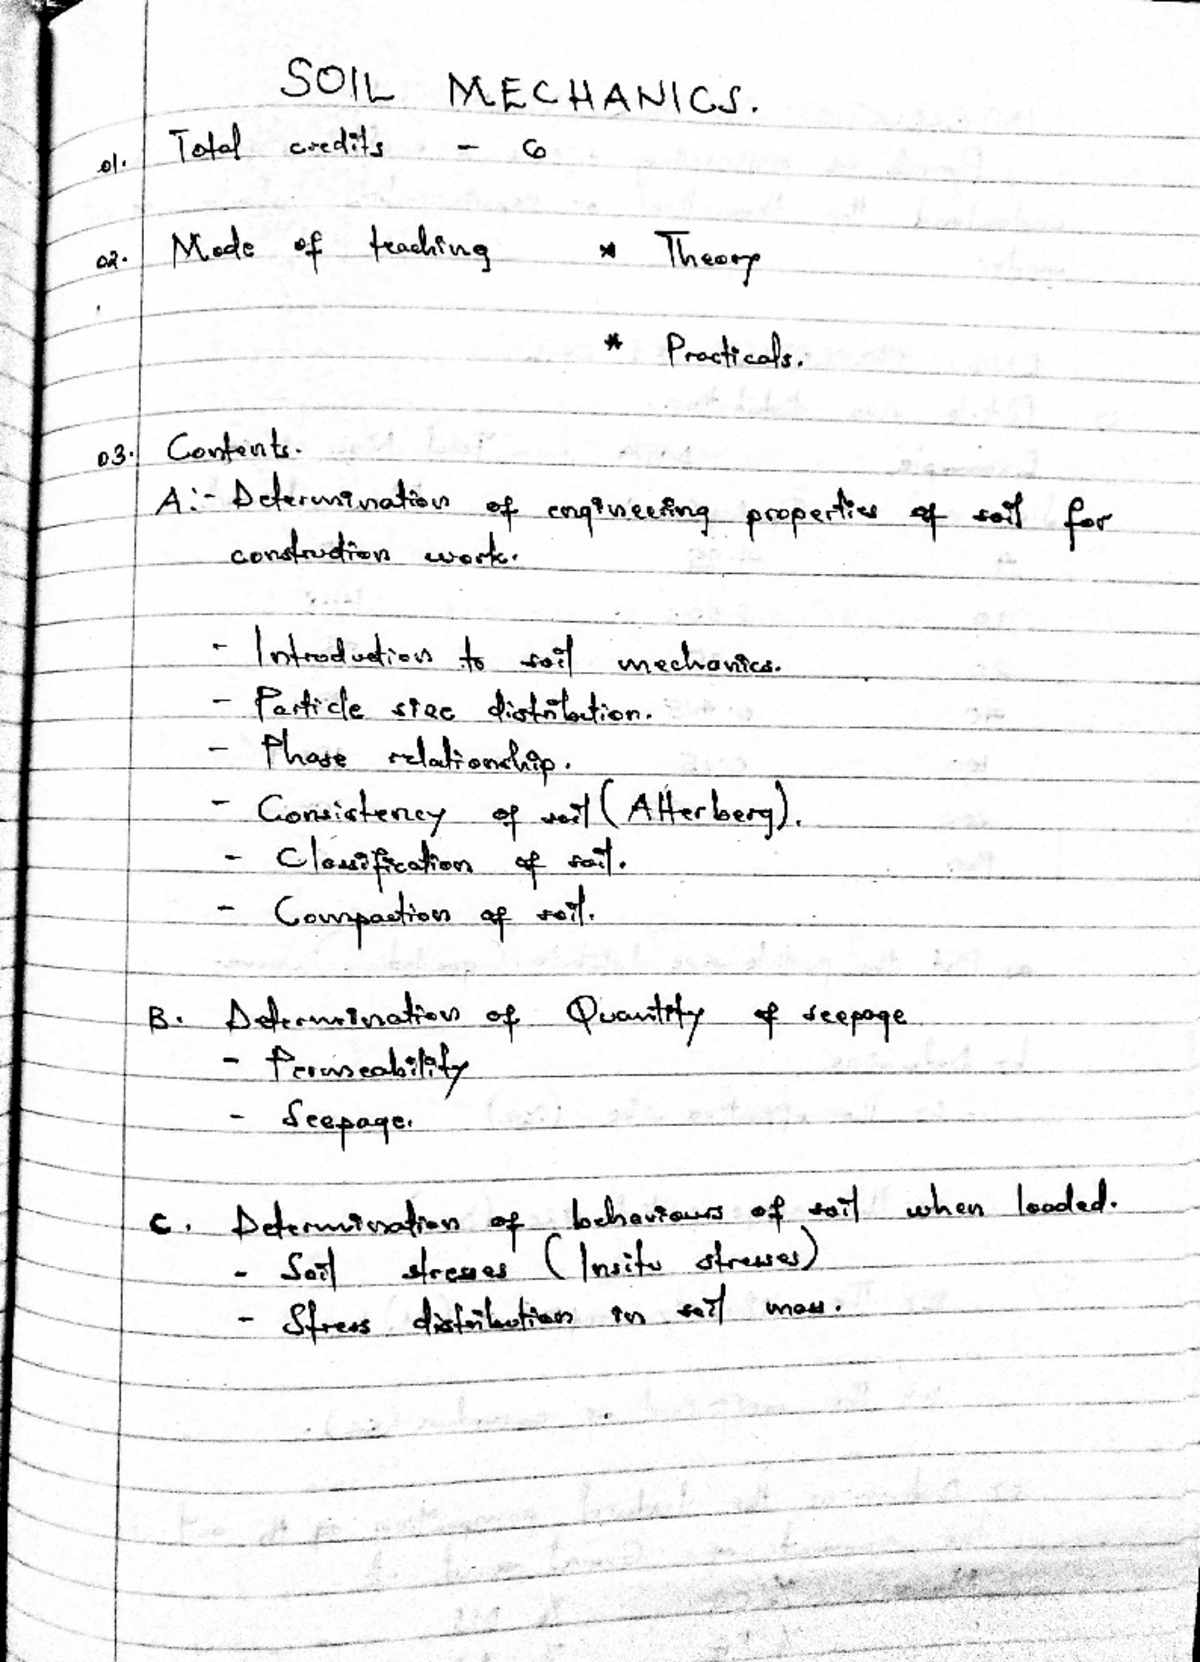 SOIL MECHANICS.
01. Total credits - 6
02. Mode of teaching * Theory
* Practicals.
03. Contents.
A:- Determination of engineering properties of soil for
construction work.
- Introduction to soil mechanics.
- Particle size distribution.
- Phase relationship.
- Consistency of soil (Atterberg).
- Classification of soil.
- Compaction of soil.
B. Determination of Quantity of seepage
- Permeability
- Seepage.
C. Determination of behaviours of soil when loaded.
- Soil stresses (Insitu stresses)
- Stress distribution in soil mass.